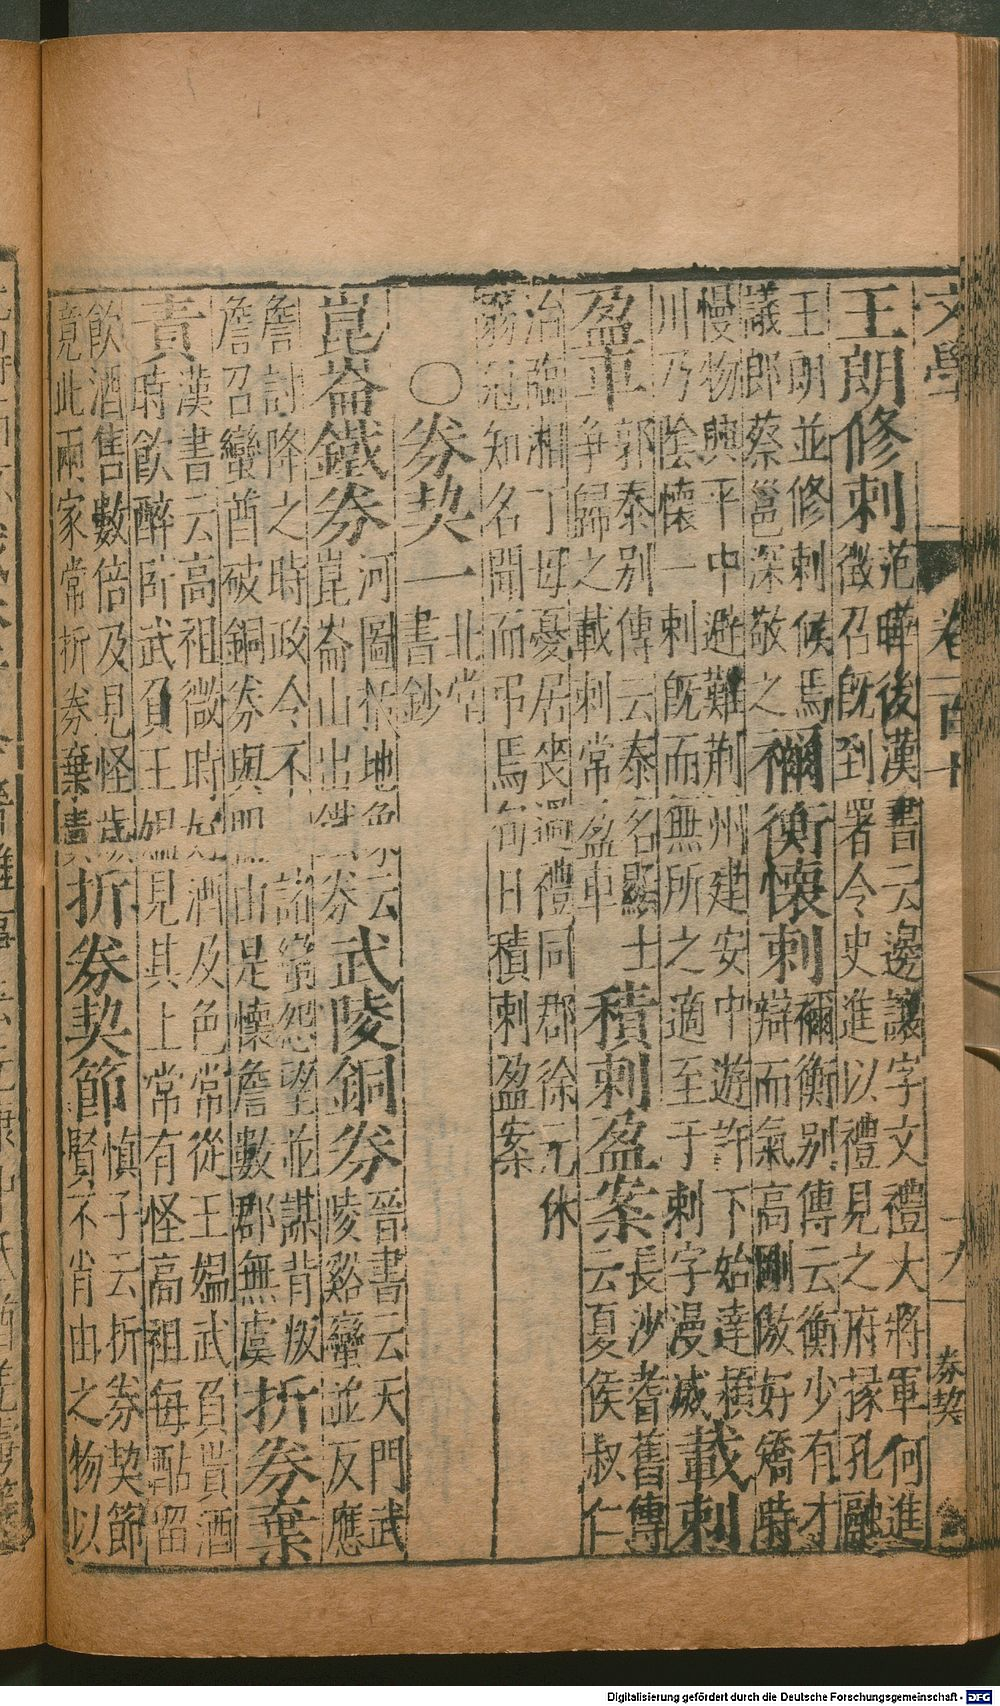 文學 卷一百十 十九 券契
王朗修刺 范曄後漢書云邊讓字文禮大將軍何進
徵召既到署令史進以禮見之府掾孔融
王朗並修刺候焉 禰衡懷刺 禰衡別傳云衡少有才
議郎蔡邕深敬之 辯而氣高剛傲好矯時
慢物興平中避難荆州建安中遊許下始達潁
川乃陰懷一刺既而無所之適至于刺字漫滅 載刺
盈車 郭泰別傳云泰名顯士
爭歸之載刺常盈車 積刺盈案 長沙耆舊傳
云夏侯叔仁
治臨湘丁母憂居喪過禮同郡徐元休
弱冠知名聞而弔焉旬日積刺盈案
〇券契一 北堂
書鈔
崑崙鐵券 河圖括地象云
崑崙山出鐵券 武陵銅券 晉書云天門武
陵谿蠻並反應
詹討降之時政令不一諸蠻怨望並謀背叛
詹召蠻酋破銅券與盟山是懷詹數郡無虞 折券棄
責 漢書云高祖微時好酒及色常從王媼武負貰酒
時飲醉卧武負王媼見其上常有怪高祖每酤留
飲酒售數倍及見怪歲
竟此兩家常折券棄責 折券契節 慎子云折券契節
賢不肖由之物以
Digitalisierung gefördert durch die Deutsche Forschungsgemeinschaft - DFG